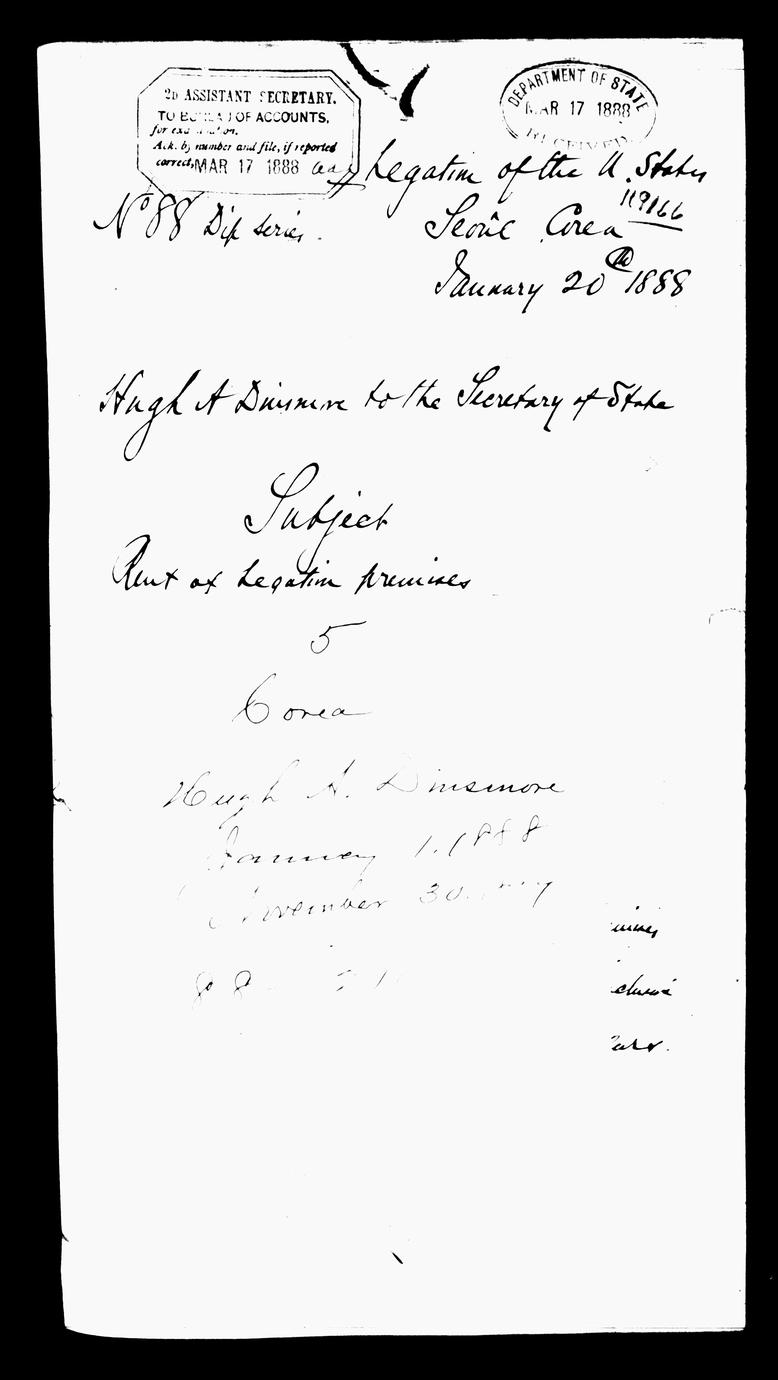 2D ASSISTANT SECRETARY.
TO BUREAU OF ACCOUNTS,
for examination.
Ack. by number and file, if reported
correct, MAR 17 1888
DEPARTMENT OF STATE
MAR 17 1888
RECEIVED
Legation of the U. States
119166
No 88 Dip series.
Seoül Corea
January 20th 1888
Hugh A Dinsmore to the Secretary of State
Subject
Rent of Legation premises
5
Corea
Hugh A. Dinsmore
January 1. 1888
November 30.
88